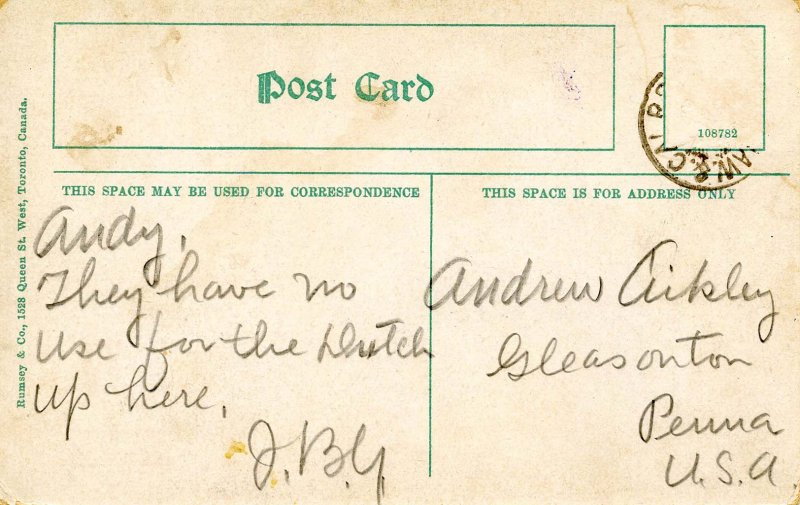 Post Card
108782
THIS SPACE MAY BE USED FOR CORRESPONDENCE
THIS SPACE IS FOR ADDRESS ONLY
Rumsey & Co., 1528 Queen St. West, Toronto, Canada.
Andy,
They have no
use for the Dutch
up here,
J.B.G.
Andrew Aikley
Gleasonton
Penna
U.S.A.